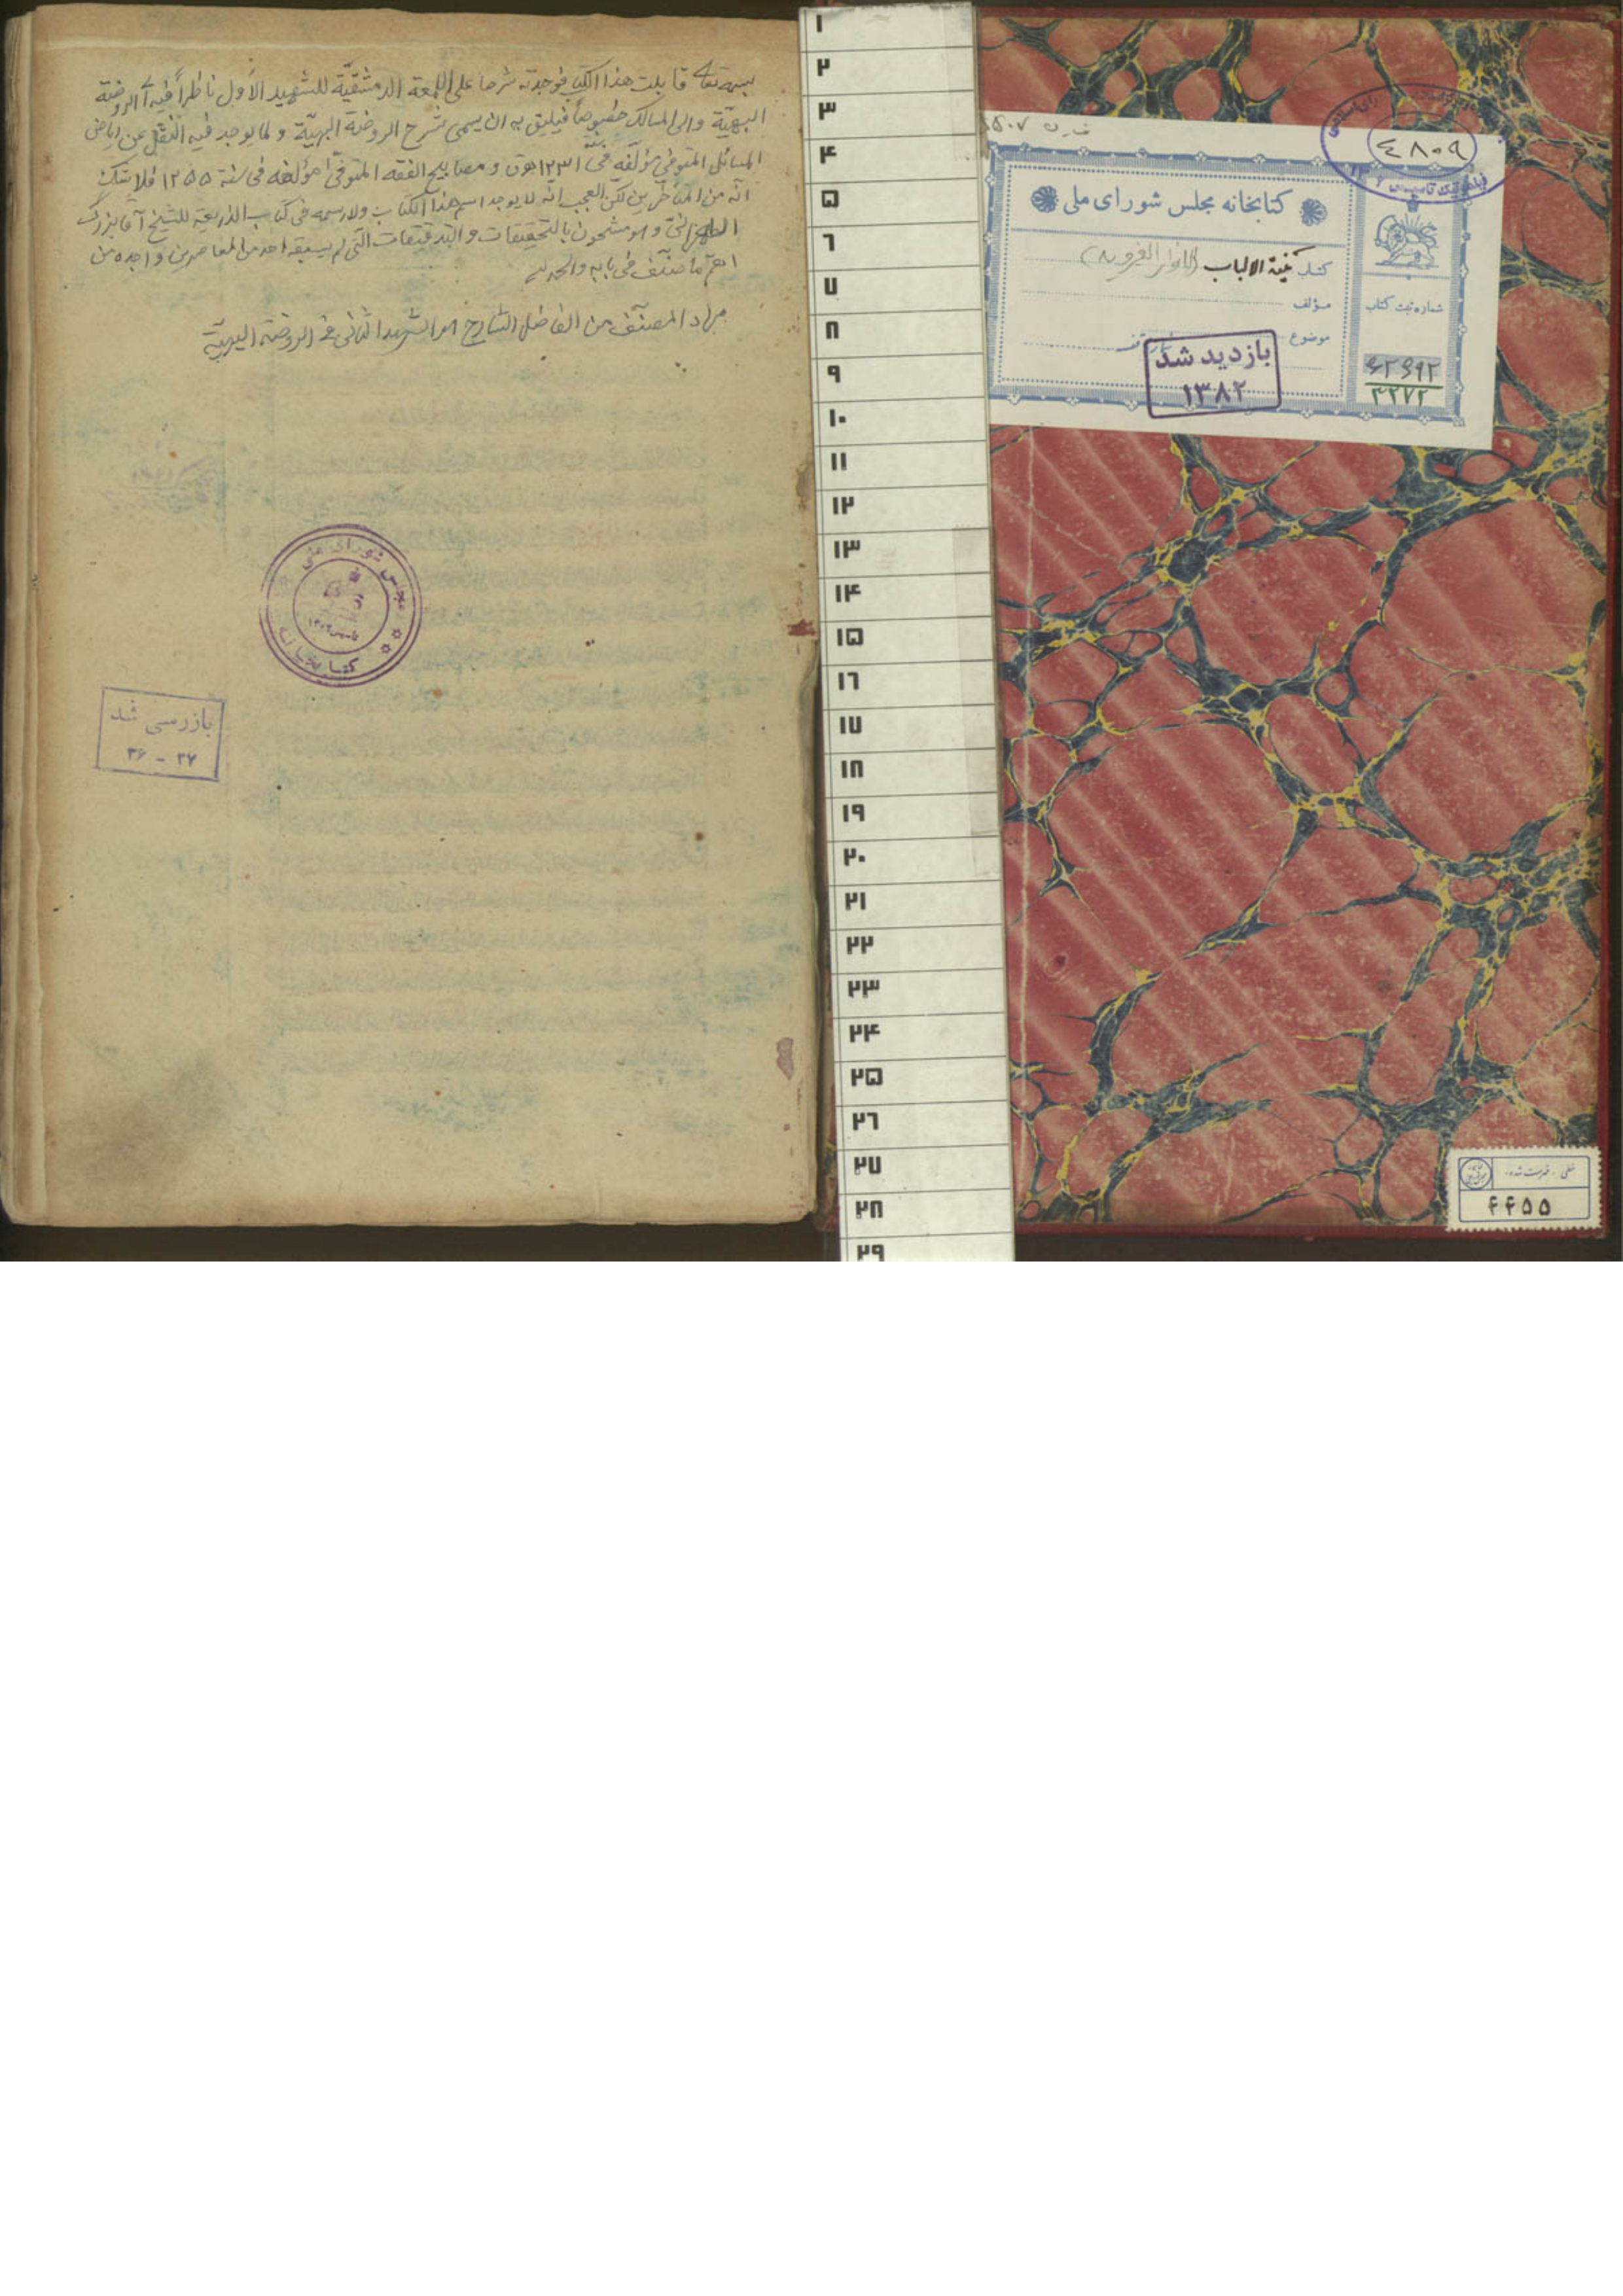 بسمه تعالی قابلت هذا الکتاب فوجدته شرحا علی اللمعة الدمشقیّة للشهید الأول ناظراً فیه الی الروضة
البهیّة والی المسالک خصوصاً فیلیق به ان یسمی بشرح الروضة البهیّة و لما یوجد فیه النقل عن ریاض
المسائل المتوفی مؤلّفه فی ١٢٣١ هـ ق و مصابیح الفقه المتوفّی مؤلفه فی سنة ١٢٥٥ فلا یشک
انّه من المتأخّرین لکن العجب انّه لا یوجد اسم هذا الکتاب ولا رسمه فی کتاب الذریعة للشیخ آقا بزرگ
الطهرانی و هو مشحون بالتحقیقات و التدقیقات التی لم یسبقه احد من المعاصرین و اجده من
اهمّ ما صنّف فی بابه والحمد لله
مراد المصنّف من الفاضل الشارح هو الشهید الثانی فی الروضة البهیّة
مجلس شورای ملی
کتابخانه
بازرسی شد
٣٦ - ٣٧
٤٨٠٩
کتابخانه مجلس شورای ملی
کتاب غنیة الالباب (الانوار الغرویه)
مؤلف
موضوع
شماره ثبت کتاب
٦٢٤٩٢
٣٢٧٢
بازدید شد
١٣٨٢
١
٢
٣
۴
۵
٦
٧
٨
٩
١٠
١١
١٢
١٣
١۴
١۵
١٦
١٧
١٨
١٩
٢٠
٢١
٢٢
٢٣
٢۴
٢۵
٢٦
٢٧
٢٨
٢٩
خطی - فهرست شده
۴۴۵۵